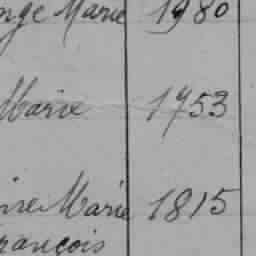 Marie 1980
Marie 1753
Marie 1815
François